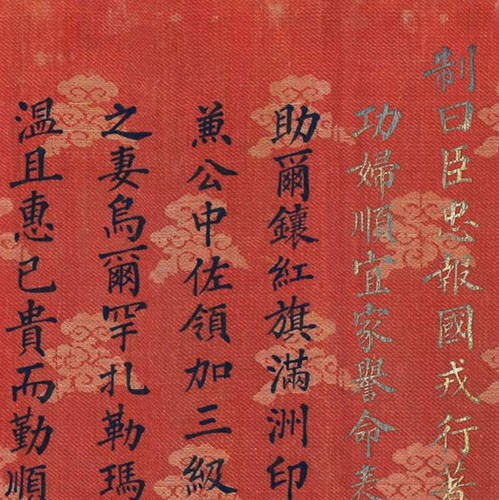 制曰臣忠報國戎行著
功婦順宜家譽命表
助爾鑲紅旗滿洲印
兼公中佐領加三級
之妻烏爾罕扎勒瑪
溫且惠已貴而勤順